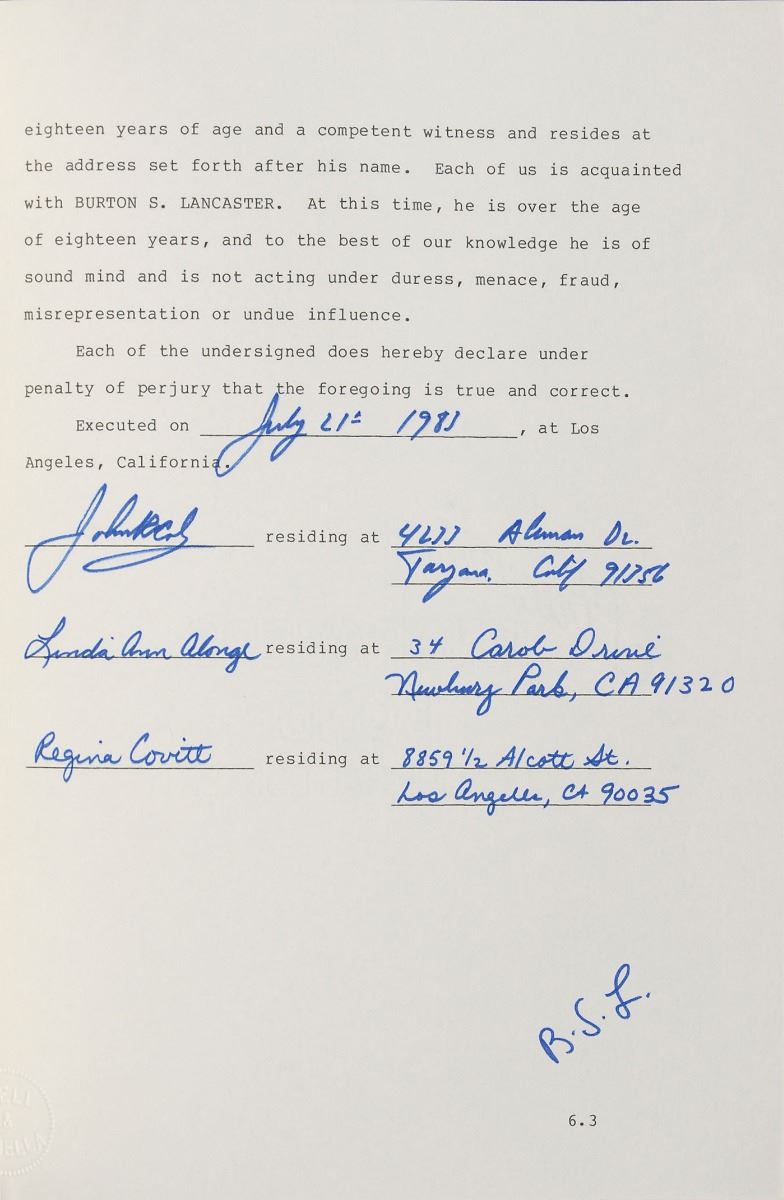 eighteen years of age and a competent witness and resides at
the address set forth after his name. Each of us is acquainted
with BURTON S. LANCASTER. At this time, he is over the age
of eighteen years, and to the best of our knowledge he is of
sound mind and is not acting under duress, menace, fraud,
misrepresentation or undue influence.
Each of the undersigned does hereby declare under
penalty of perjury that the foregoing is true and correct.
Executed on July 21st 1983, at Los
Angeles, California.
John residing at Dr.
Tarzana, Calif 91356
Linda Ann Alonge residing at 34 Carob Drive
Newbury Park, CA 91320
Regina Covitt residing at 8859 1/2 Alcott St.
Los Angeles, CA 90035
B.S.L.
6.3